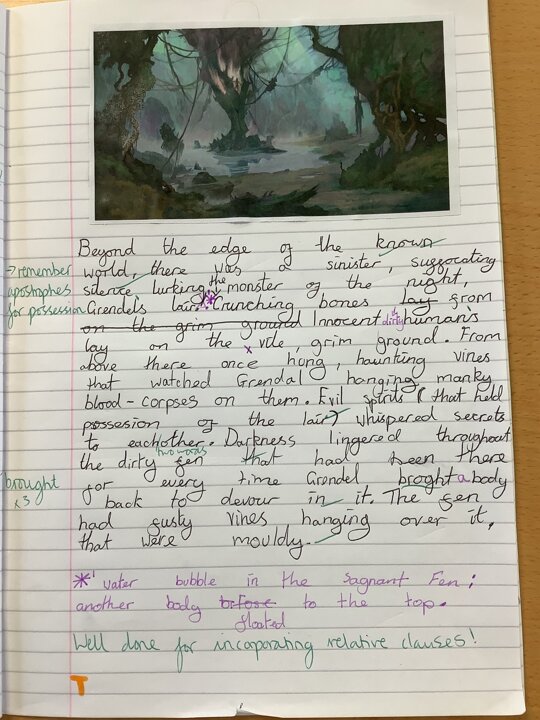 Beyond the edge of the known
→ remember
world, there was a sinister, suggocating
the
apostrophes
silence, lurking monster of the night,
for possession
Grendels lair. * Crunching bones lay from
dirty
on the grim, ground Innocent human's
lay on the x vile, grim ground. From
above there once hong, haunting vines
that watched Grendal hanging manky
blood-corpses on them. Evil spirits (that held
possesion of the lair) whispered secrets
to eachother. Darkness lingered throughout
two words
the dirty fen that had been there
brought
for every time Grendel broght a body
x3
back to devour in it. The fen
had gusty vines hanging over it,
that were mouldy.
* water bubble in the sagnant Fen;
another body to the top.
floated
Well done for incoporating relative clauses!
T